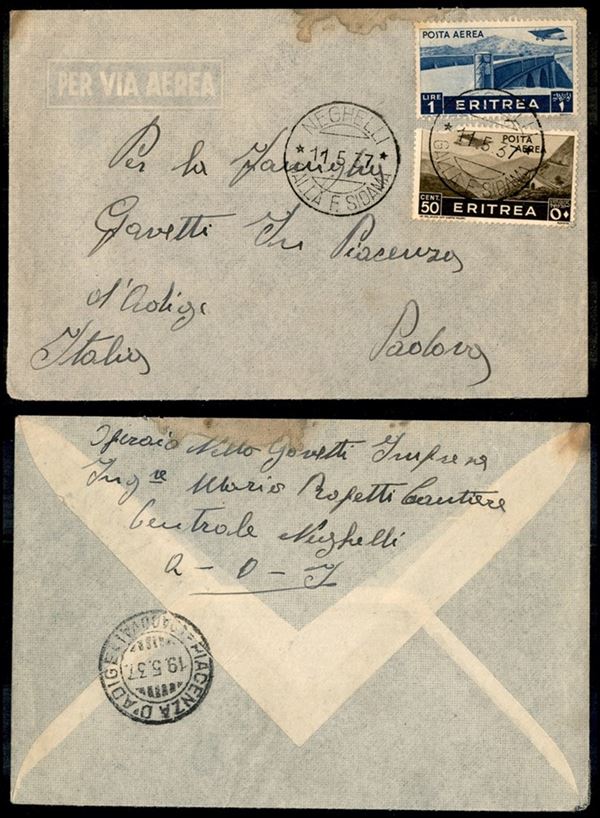 PER VIA AEREA
POSTA AEREA
LIRE 1 ERITREA
POSTA AEREA
CENT. 50 ERITREA
NEGHELLI
* 11.5.37 *
GALLA E SIDAMA
* 11.5.37 *
GALLA E SIDAMA
Per la Famiglia
Gavetti In Piacenza
d'Adige
Italia Padova
Operaio Netto Gavetti Impresa
Ingre Mario Profetti Cantiere
Centrale Neghelli
A-O-I
PIACENZA D'ADIGE (PADOVA)
19.5.37.